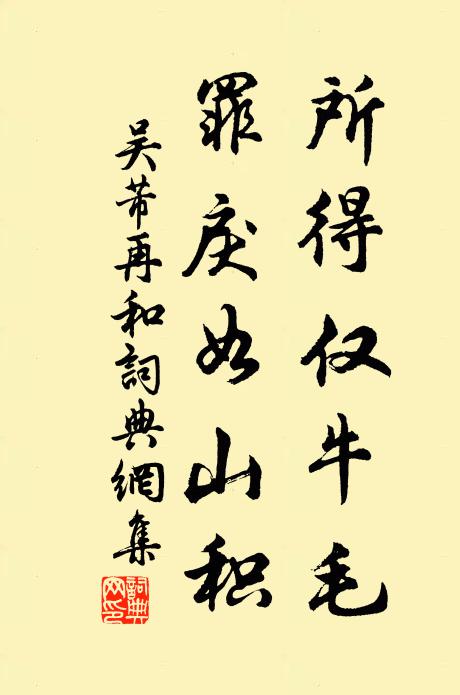 所得仅牛毛
罪戾如山积
吴芾再和詞典網集
詞典网印